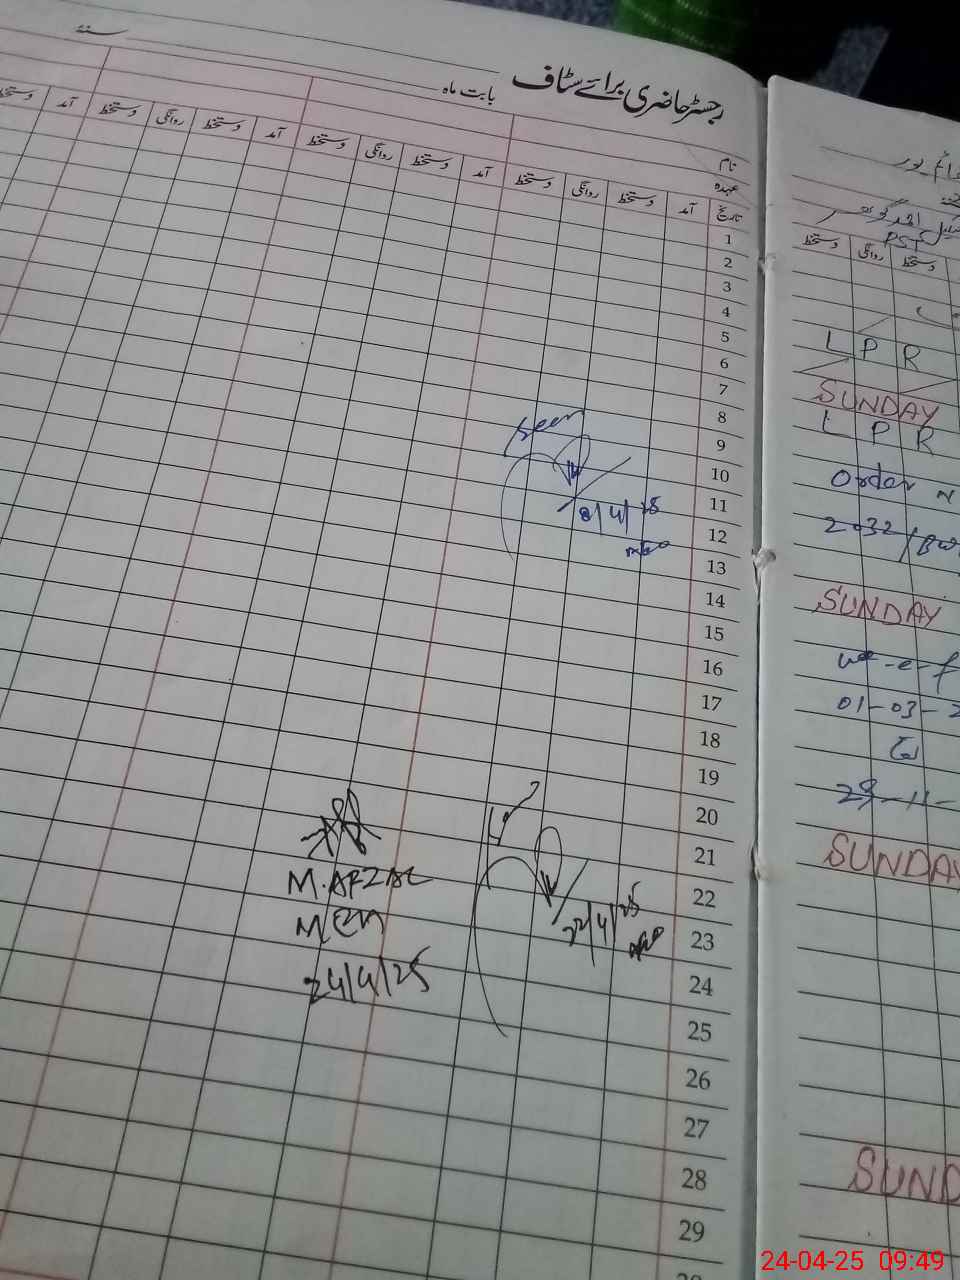 رجسٹر حاضری برائے سٹاف
بابت ماہ
سنہ
نام
عہدہ
تاریخ آمد دستخط روانگی دستخط آمد دستخط روانگی دستخط آمد دستخط روانگی دستخط آمد دستخط
1
2
3
4
5
6
7
8
9
10
11
12
13
14
15
16
17
18
19
20
21
22
23
24
25
26
27
28
29
30
Seen
8/4/25
22/4/25
M. AFZAL
24/4/25
PST
دستخط روانگی دستخط
L P R
SUNDAY
L P R
Order N
2032/BW
SUNDAY
w-e-f
01-03-2
29-11-
SUNDAY
SUND
24-04-25 09:49